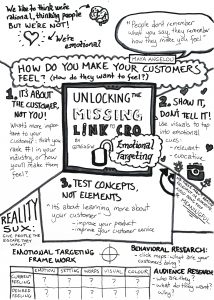 We like to think we're
rational, thinking people
BUT WE'RE NOT!
We're
emotional
"People don't remember
what you say, they remember
how they make you feel"
MAYA ANGELOU
HOW DO YOU MAKE YOUR CUSTOMERS
FEEL? (How do they want to feel?)
1. IT'S ABOUT
THE CUSTOMER,
NOT YOU!
What's more
important to
your
customer? that you
rank #1 in your
industry, or how
you'll make them
feel?
UNLOCKING THE
MISSING
LINK CRO
Emotional
Targeting
2. SHOW IT,
DON'T TELL IT!
Use visuals to tap
into emotional
cues
- relevant
- evocative
3. TEST CONCEPTS,
NOT ELEMENTS
It's about learning more about
your customer
- improve your product
- improve your customer service
REALITY
SUX:
GIVE PEOPLE THE
ESCAPE THEY
WANT
EMOTIONAL TARGETING
FRAMEWORK
EMOTION SETTING WORDS VISUAL COLOUR
CURRENT
FEELING ? ? ? ? ?
DESIRED
FEELING ? ? ? ? ?
BEHAVIORAL RESEARCH:
- click maps
AUDIENCE RESEARCH
- who are they?
- what do they want?
- why?